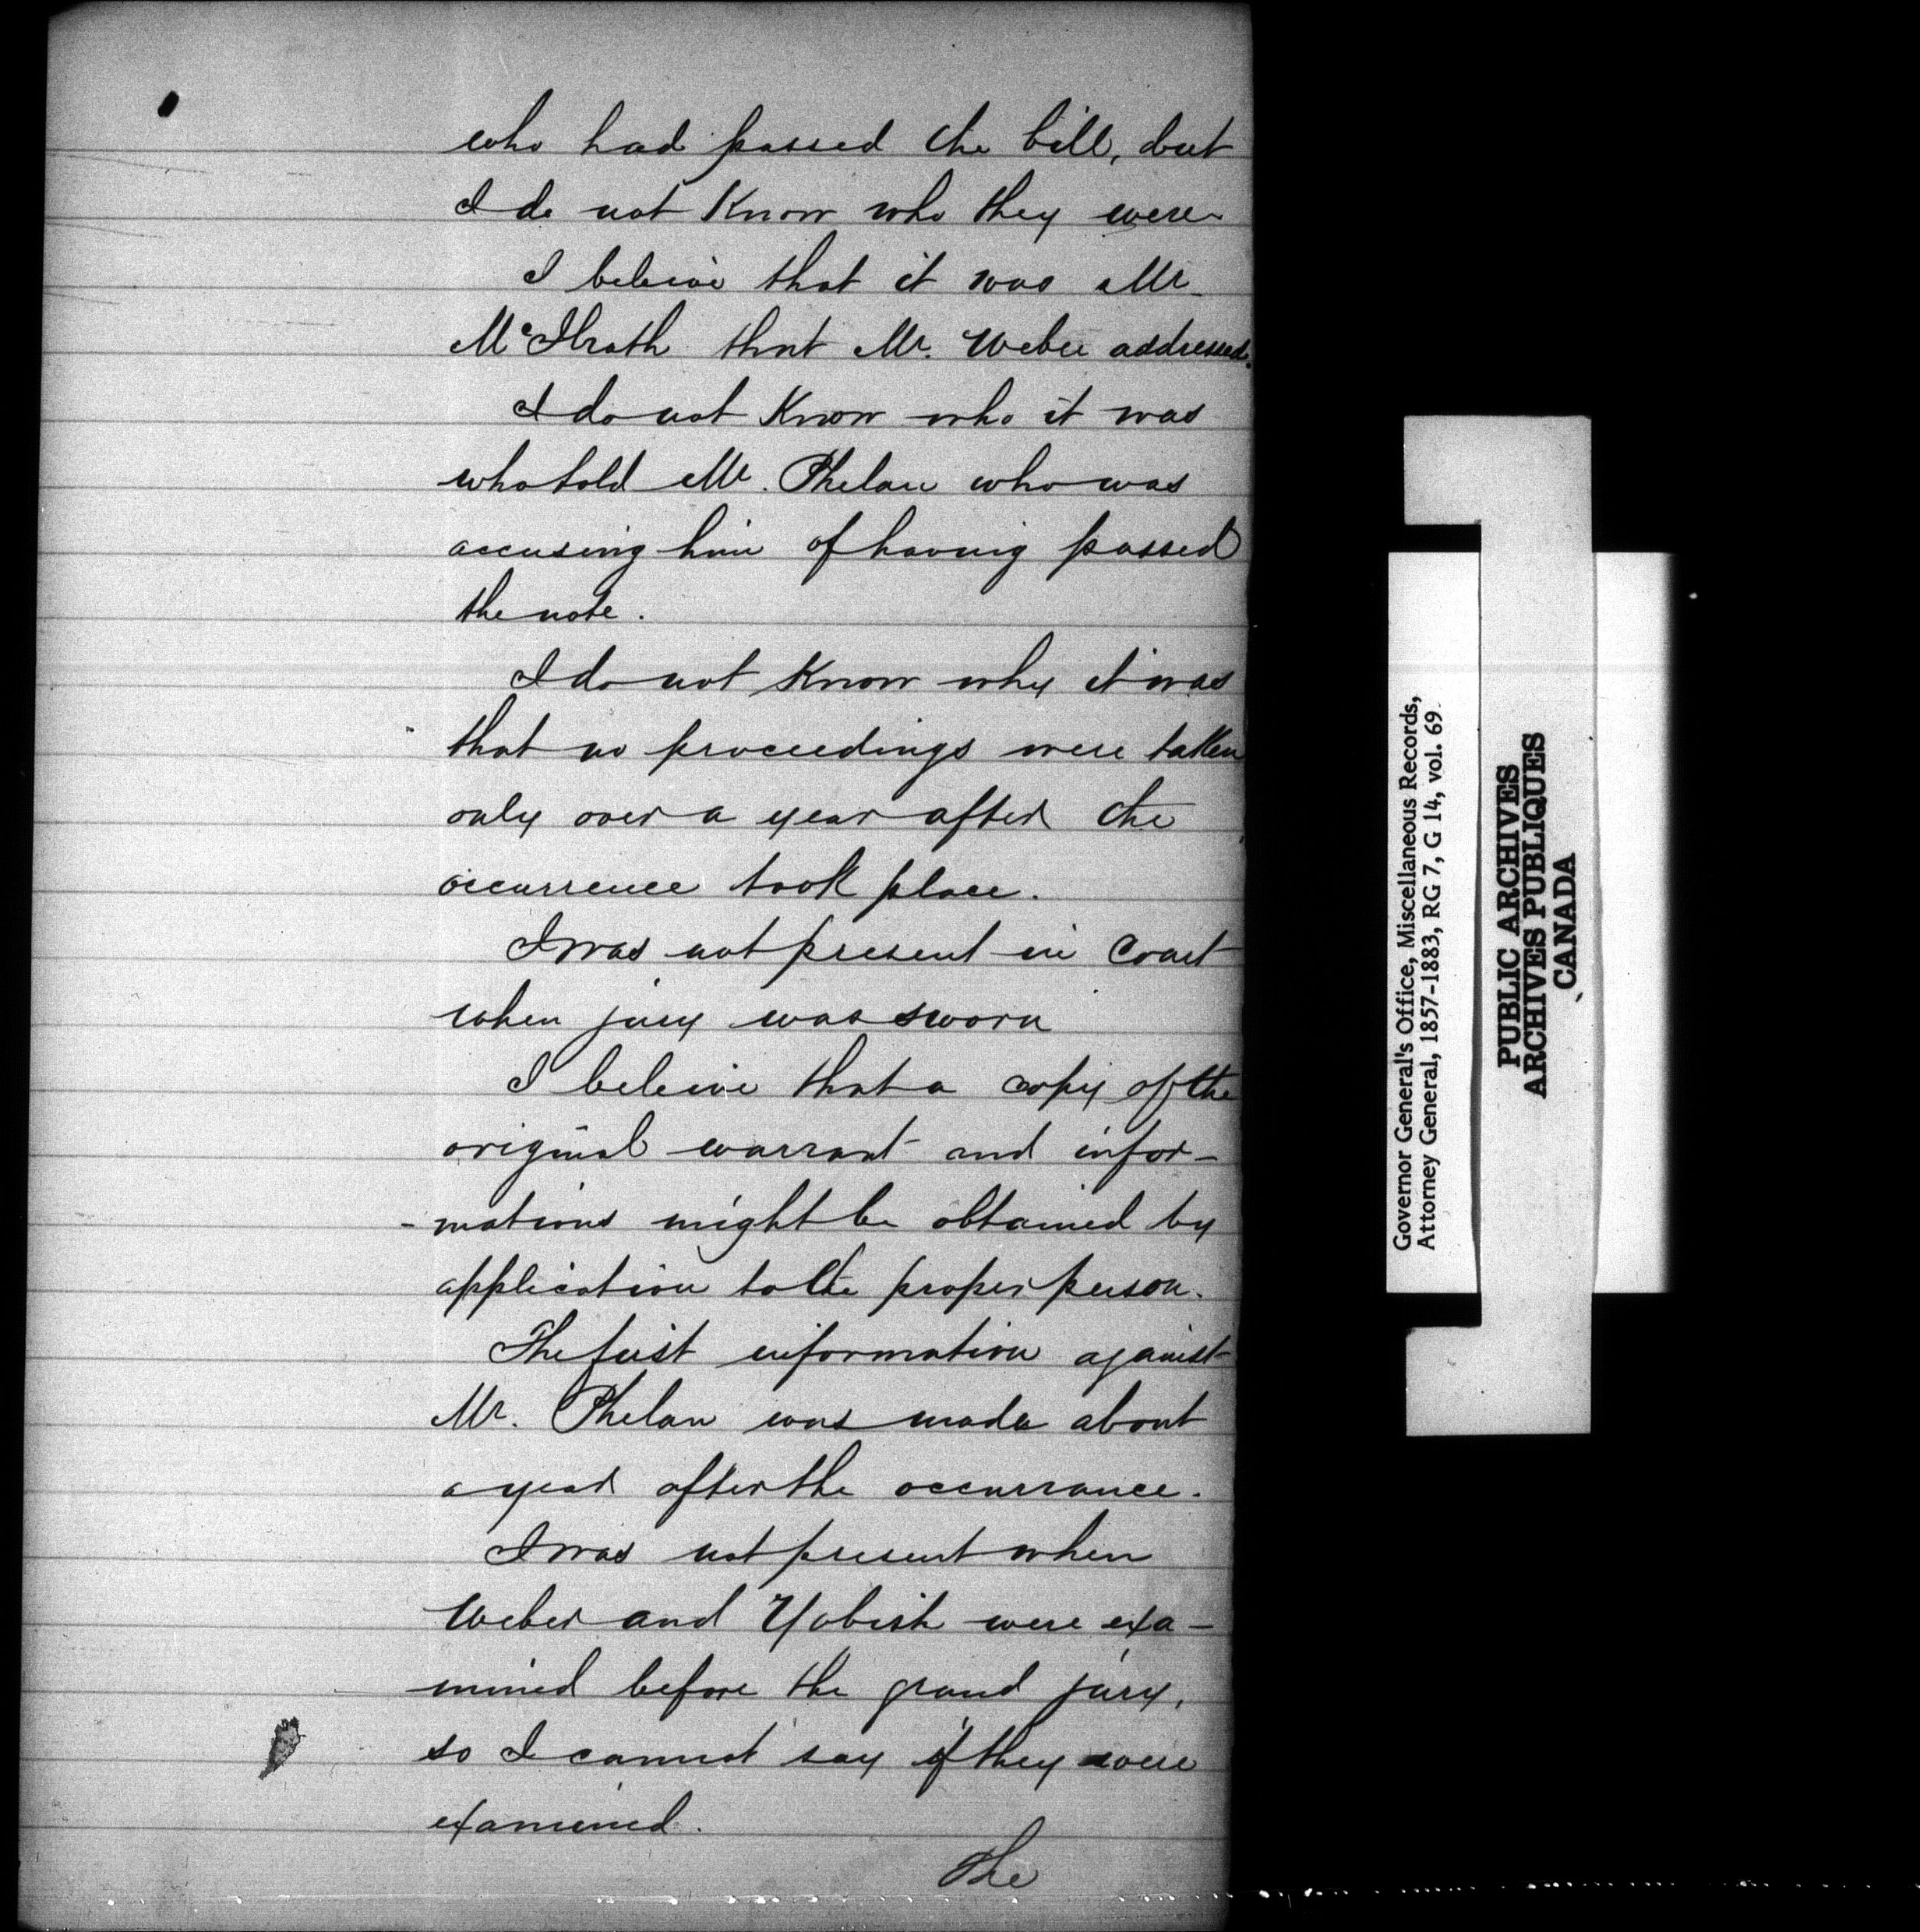 who had passed the bill, but
I do not Know who they were
I beleive that it was Mr.
McIlrath that Mr. Weber addressed.
I do not Know who it was
who told Mr. Phelan who was
accusing him of having passed
the note.
I do not Know why it was
that no proceedings were taken
only over a year after the
occurrence took place.
I was not present in Court
when jury was sworn
I beleive that a copy of the
original warrant and infor-
-mations might be obtained by
application to the proper person.
The first information against
Mr. Phelan was made about
a year after the occurrance.
I was not present when
Weber and Yobish were exa-
mined before the grand jury,
so I cannot say if they were
examined.
The
Governor General's Office, Miscellaneous Records,
Attorney General, 1857-1883, RG 7, G 14, vol. 69.
PUBLIC ARCHIVES
ARCHIVES PUBLIQUES
CANADA